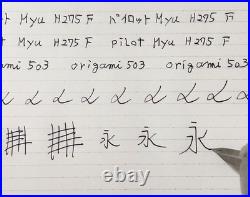 ト Myu H275 F パイロット Myu H275 F
t Myu H275 F pilot Myu H275 F
ami 503 origami 503 origami 503
永 永 永